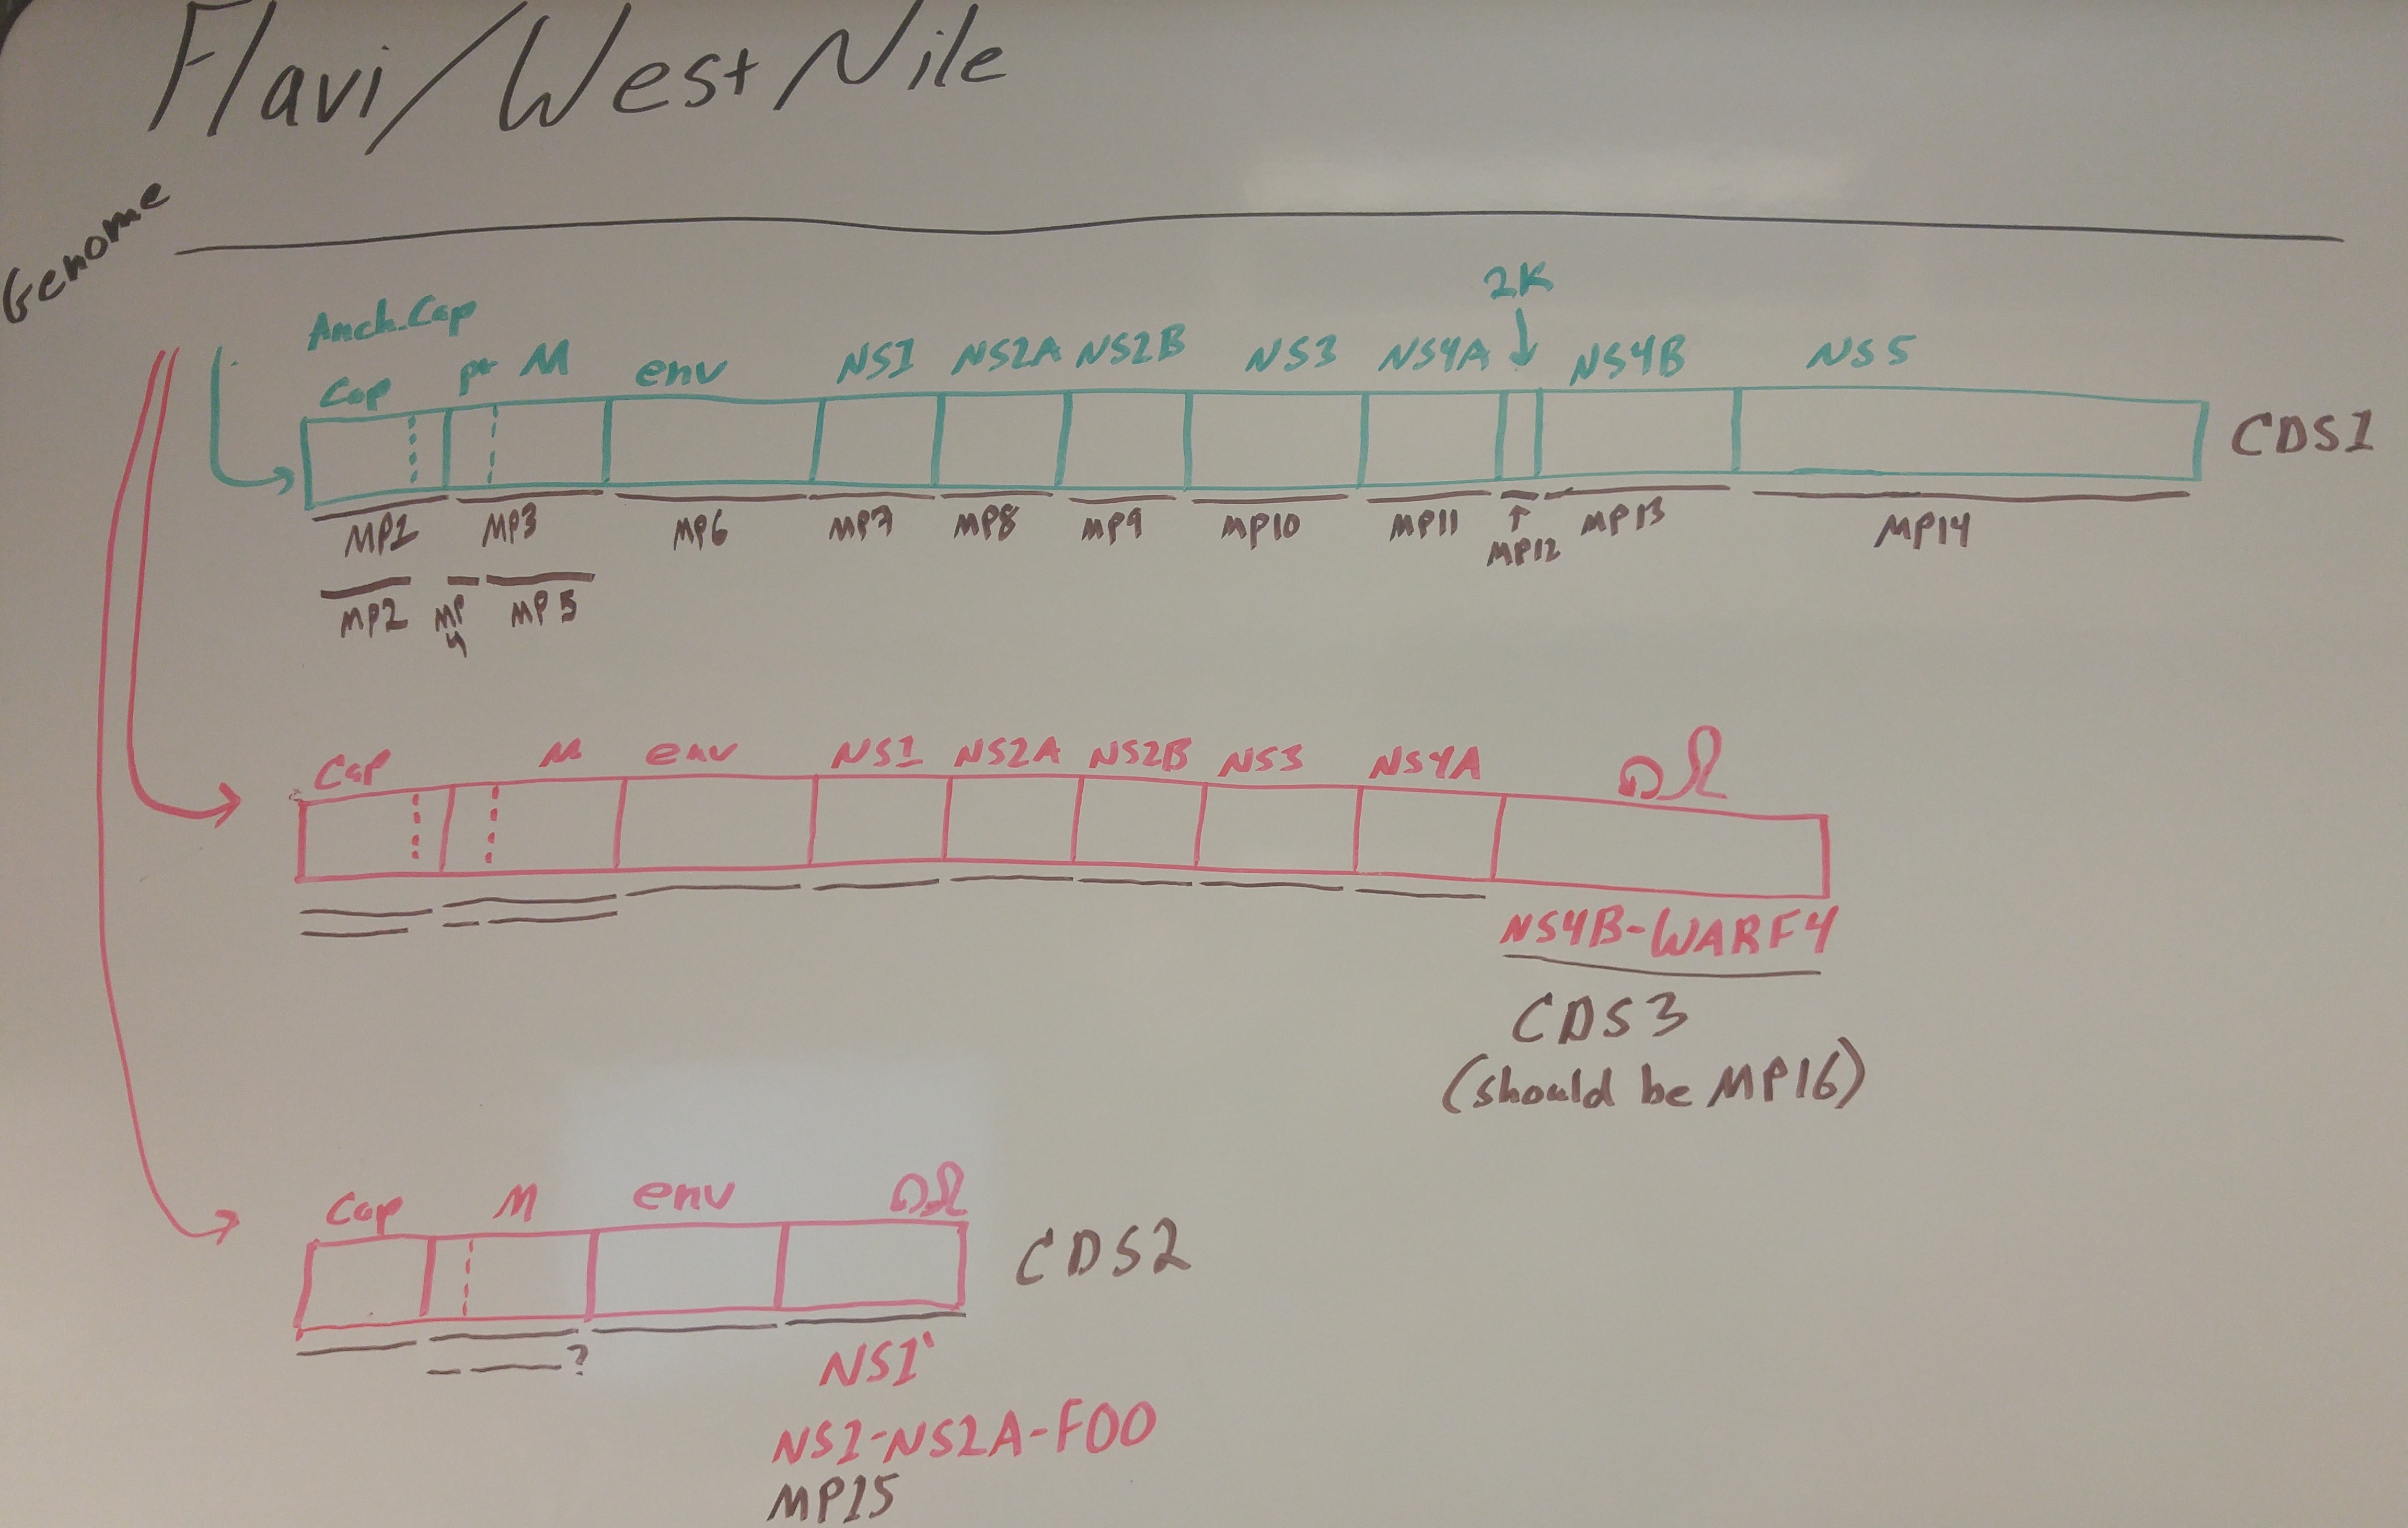 Flavi/West Nile
Genome
2K
Anch.Cap
Cap pr M env NS1 NS2A NS2B NS3 NS4A NS4B NS5
CDS1
MP1 MP3 MP6 MP7 MP8 MP9 MP10 MP11 MP12 MP13 MP14
MP2 MP4 MP5
Cap M env NS1 NS2A NS2B NS3 NS4A
NS4B-WARF4
CDS3
(should be MP16)
Cap M env
CDS2
?
NS1'
NS1-NS2A-FOO
MP15